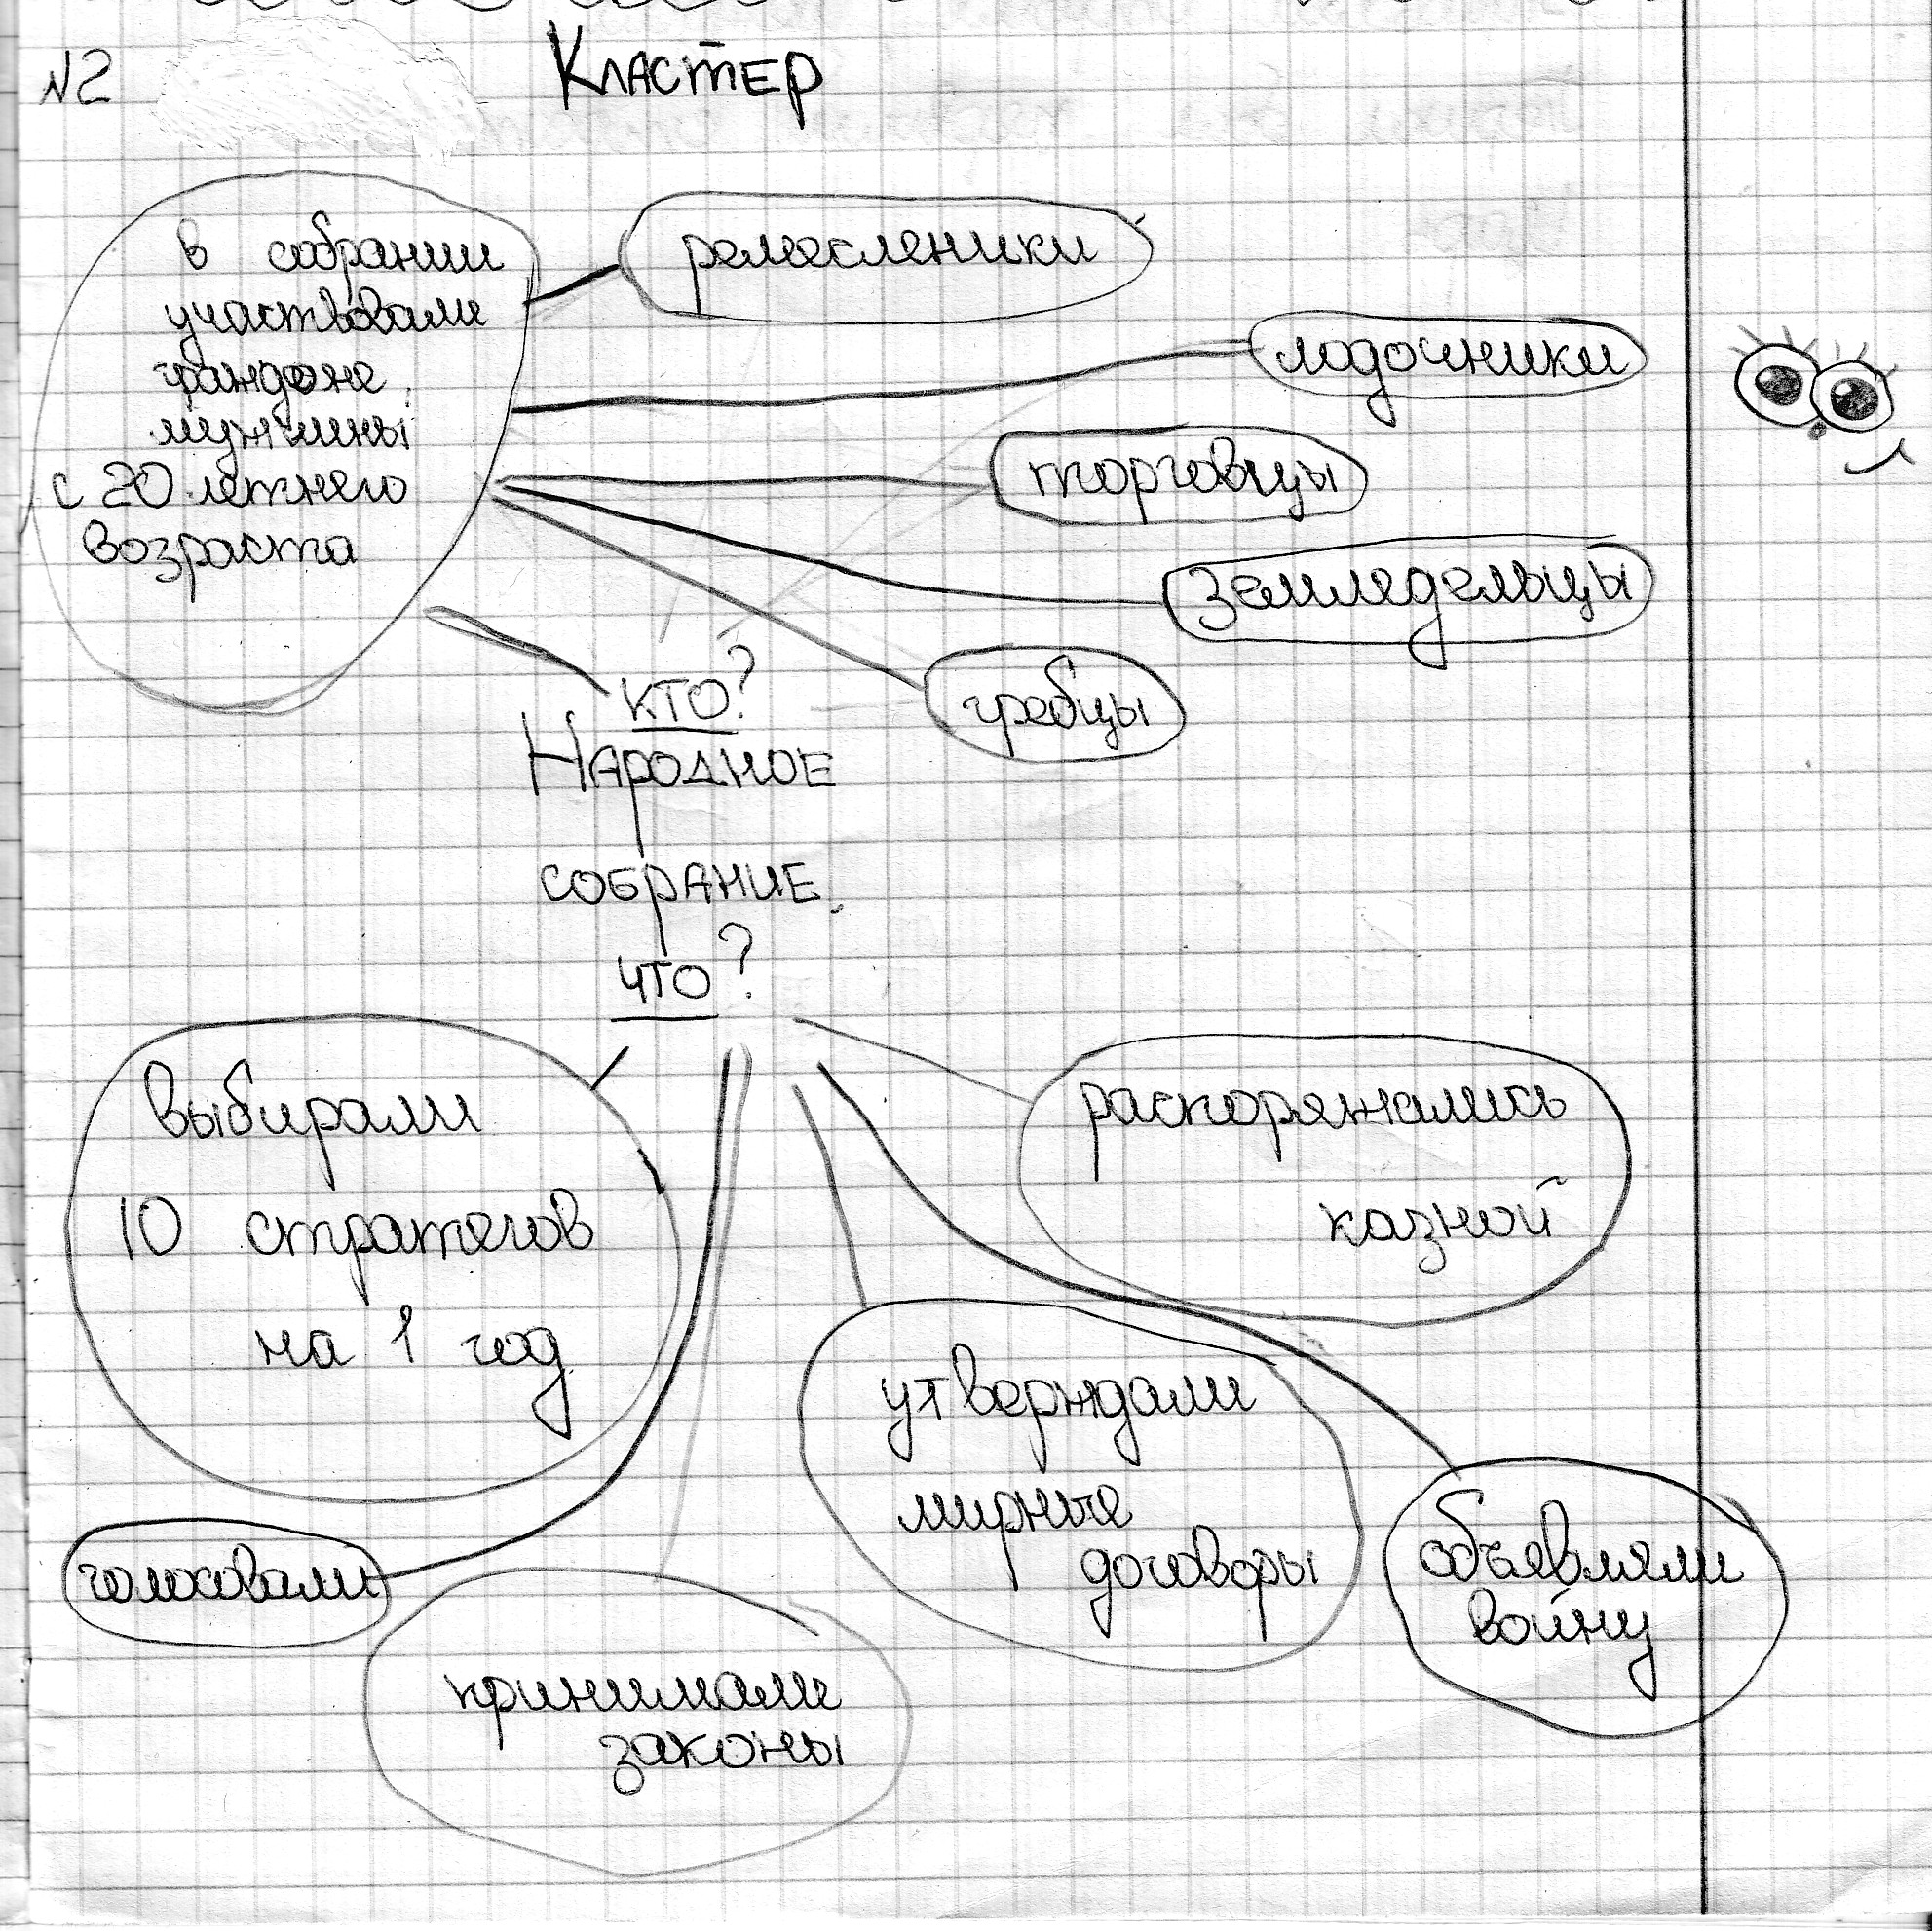 N2
Кластер
в собрании
участвовали
граждане
мужчины
с 20 летнего
возраста
ремесленики
лодочники
торговцы
земледельцы
гребцы
КТО?
НАРОДНОЕ
СОБРАНИЕ
ЧТО?
выбирали
10 стратегов
на 1 год
распоряжались
казной
утверждали
мирные
договоры
объявляли
войну
голосовали
принимали
законы